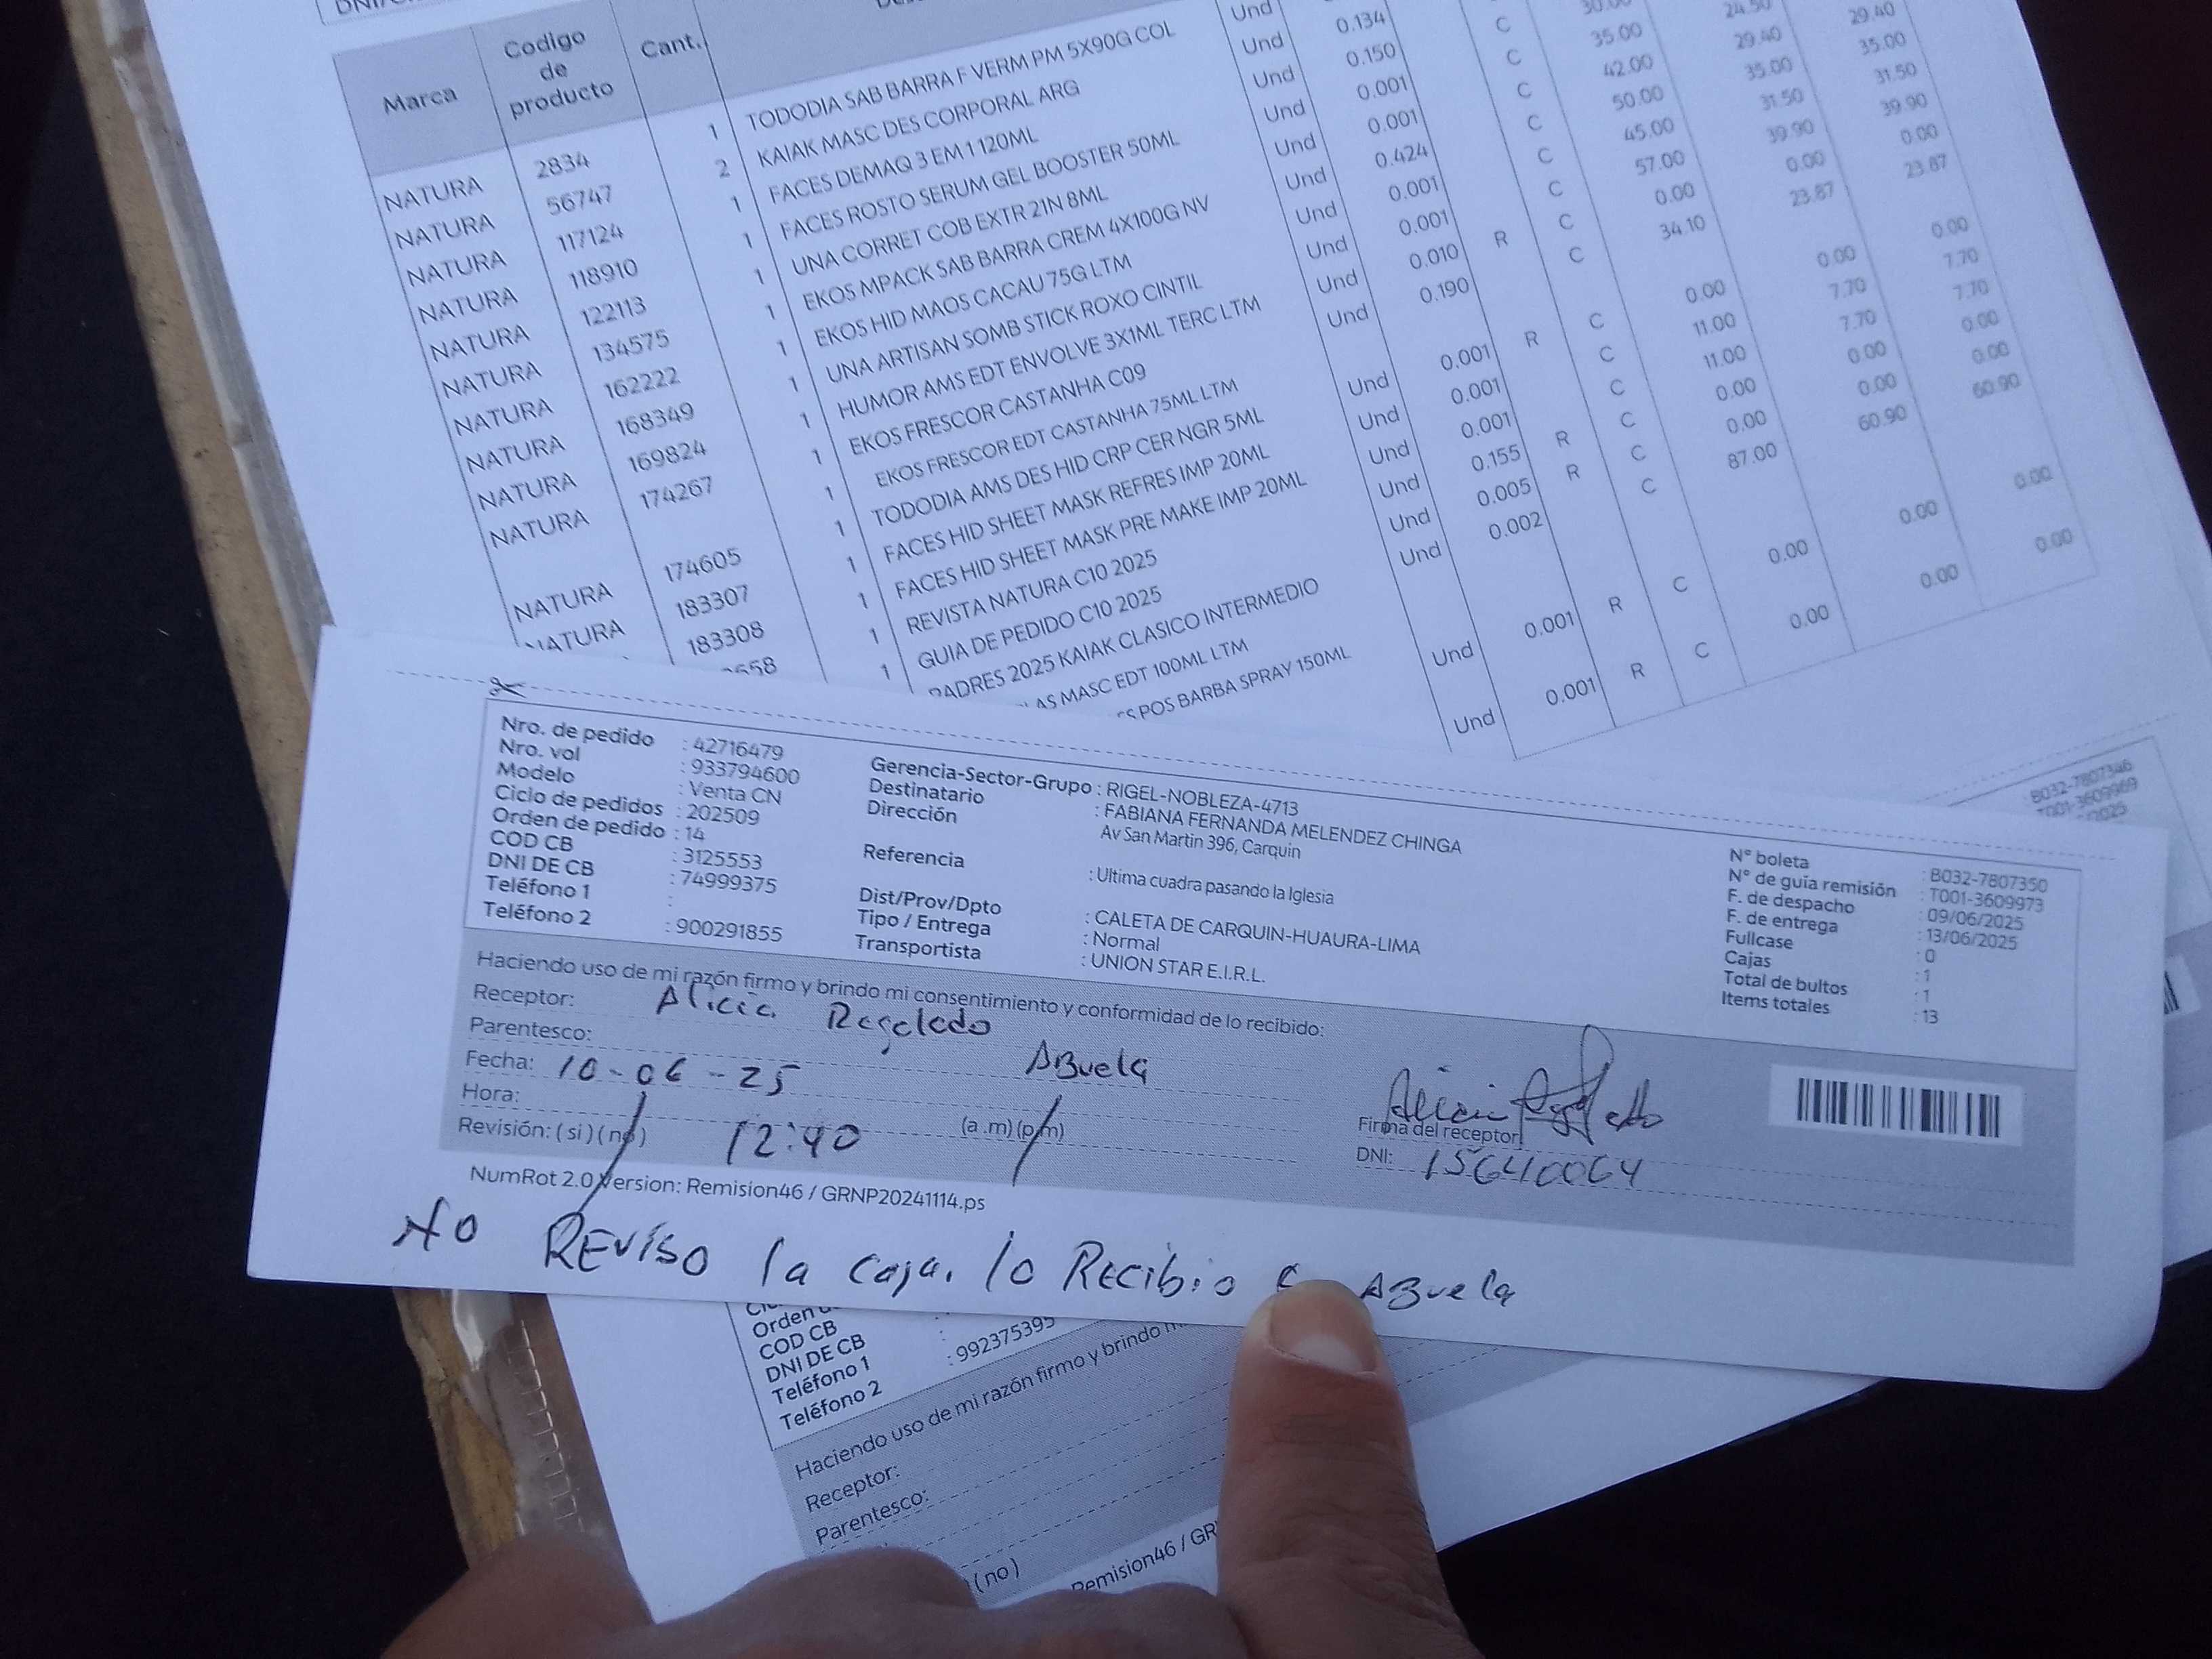 Marca Codigo de producto Cant.
NATURA 2834 1 TODODIA SAB BARRA F VERM PM 5X90G COL Und 0.134 C
NATURA 56747 2 KAIAK MASC DES CORPORAL ARG Und 0.150 C 35.00 29.40 35.00
NATURA 117124 1 FACES DEMAQ 3 EM 1 120ML Und 0.001 C 42.00 35.00 31.50
NATURA 118910 1 FACES ROSTO SERUM GEL BOOSTER 50ML Und 0.001 C 50.00 31.50 39.90
NATURA 122113 1 UNA CORRET COB EXTR 21N 8ML Und 0.424 C 45.00 39.90 0.00
NATURA 134575 1 EKOS MPACK SAB BARRA CREM 4X100G NV Und 0.001 C 57.00 0.00 23.87
NATURA 162222 1 EKOS HID MAOS CACAU 75G LTM Und 0.001 C 0.00 23.87
NATURA 168349 1 UNA ARTISAN SOMB STICK ROXO CINTIL Und 0.010 R C 34.10
NATURA 169824 1 HUMOR AMS EDT ENVOLVE 3X1ML TERC LTM Und 0.190
NATURA 174267 1 EKOS FRESCOR CASTANHA C09
EKOS FRESCOR EDT CASTANHA 75ML LTM Und 0.001 R C 0.00 0.00 0.00
NATURA 174605 1 TODODIA AMS DES HID CRP CER NGR 5ML Und 0.001 C 11.00 7.70 7.70
NATURA 183307 1 FACES HID SHEET MASK REFRES IMP 20ML Und 0.001 C 11.00 7.70 7.70
183308 1 FACES HID SHEET MASK PRE MAKE IMP 20ML Und 0.155 R C 0.00 0.00 0.00
658 1 REVISTA NATURA C10 2025 Und 0.005 R C 0.00 0.00 0.00
1 GUIA DE PEDIDO C10 2025 Und 0.002 C 87.00 60.90 60.90
PADRES 2025 KAIAK CLASICO INTERMEDIO
AS MASC EDT 100ML LTM Und 0.001 R C 0.00 0.00 0.00
POS BARBA SPRAY 150ML Und 0.001 R C 0.00 0.00 0.00
B032-7807346
T001-3609969
Nro. de pedido : 42716479
Nro. vol : 933794600
Modelo : Venta CN
Ciclo de pedidos : 202509
Orden de pedido : 14
COD CB : 3125553
DNI DE CB : 74999375
Teléfono 1 :
Teléfono 2 : 900291855
Gerencia-Sector-Grupo : RIGEL-NOBLEZA-4713
Destinatario : FABIANA FERNANDA MELENDEZ CHINGA
Dirección Av San Martin 396, Carquin
Referencia : Ultima cuadra pasando la Iglesia
Dist/Prov/Dpto : CALETA DE CARQUIN-HUAURA-LIMA
Tipo / Entrega : Normal
Transportista : UNION STAR E.I.R.L.
N° boleta : B032-7807350
N° de guía remisión : T001-3609973
F. de despacho : 09/06/2025
F. de entrega : 13/06/2025
Fullcase : 0
Cajas : 1
Total de bultos : 1
Items totales : 13
Haciendo uso de mi razón firmo y brindo mi consentimiento y conformidad de lo recibido:
Receptor: Alicia Regaledo
Parentesco: ABuela
Fecha: 10-06-25
Hora: 12:40 (a.m) (p.m)
Revisión: ( si ) ( no )
Firma del receptor
DNI: 15640064
NumRot 2.0 Version: Remision46 / GRNP20241114.ps
No REVISO la caja. lo Recibio ABuela
Orden
COD CB
DNI DE CB
Teléfono 1 :
Teléfono 2 : 992375395
Haciendo uso de mi razón firmo y brindo
Receptor:
Parentesco:
( no )
Remision46 / GR